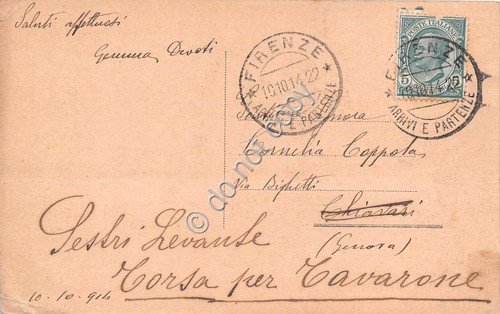 Saluti affettuosi
Gemma Devoti
FIRENZE
10.10.14.22
ARRIVI E PARTENZE
POSTE ITALIANE
5 5
FIRENZE
ARRIVI E PARTENZE
do not copy
Cornelia Coppola
Via Bighetti
Chiavari
(Genova)
Sestri Levante
Torsa per Tavarone
10-10-914